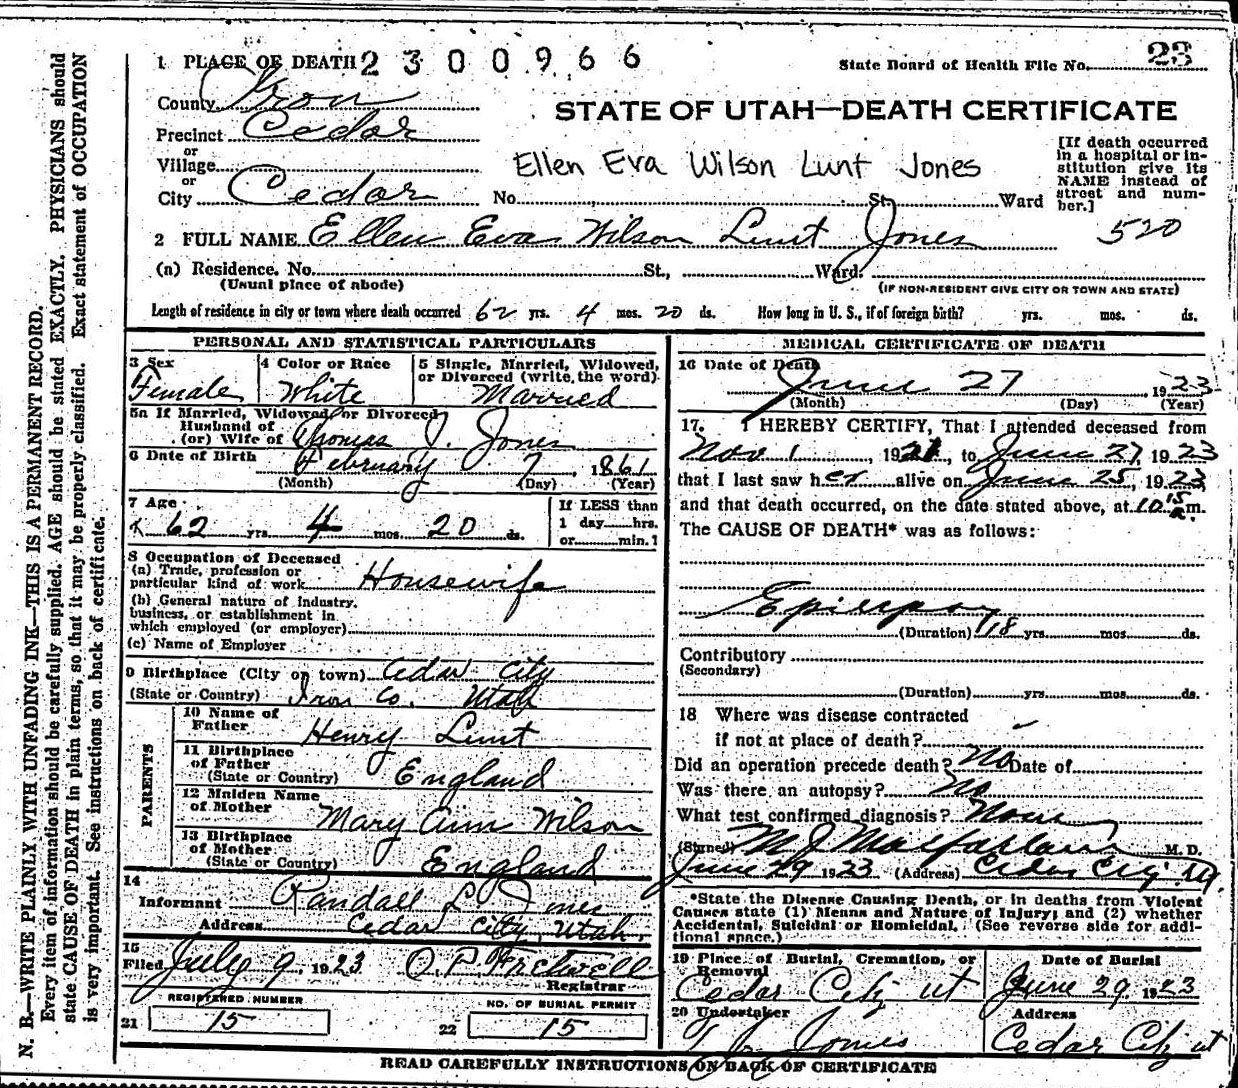 1 PLACE OF DEATH 2300966
State Board of Health File No. 23
County Iron
STATE OF UTAH—DEATH CERTIFICATE
Precinct Cedar
or
Village
or
City Cedar No. St. Ward
Ellen Eva Wilson Lunt Jones
[If death occurred
in a hospital or in-
stitution give its
NAME instead of
street and num-
ber.]
520
2 FULL NAME Ellen Eva Wilson Lunt Jones
(a) Residence. No. St., Ward.
(Usual place of abode) (IF NON-RESIDENT GIVE CITY OR TOWN AND STATE)
Length of residence in city or town where death occurred 62 yrs. 4 mos. 20 ds. How long in U. S., if of foreign birth? yrs. mos. ds.
PERSONAL AND STATISTICAL PARTICULARS
3 Sex 4 Color or Race 5 Single, Married, Widowed,
or Divorced (write the word)
Female White Married
5a If Married, Widowed or Divorced
Husband of
(or) Wife of Thomas J. Jones
6 Date of Birth February 7, 1861
(Month) (Day) (Year)
7 Age 62 yrs. 4 mos. 20 ds.
If LESS than
1 day hrs.
or min.?
8 Occupation of Deceased
(a) Trade, profession or
particular kind of work Housewife
(b) General nature of industry,
business, or establishment in
which employed (or employer)
(c) Name of Employer
9 Birthplace (City or town) Cedar City
(State or Country) Iron Co. Utah
PARENTS
10 Name of
Father Henry Lunt
11 Birthplace
of Father
(State or Country) England
12 Maiden Name
of Mother Mary Ann Wilson
13 Birthplace
of Mother
(State or Country) England
14
Informant Randall L. Jones
Address Cedar City, Utah.
15
Filed July 9, 1923 O. P. Fretwell
Registrar
REGISTERED NUMBER NO. OF BURIAL PERMIT
21 15 22 15
MEDICAL CERTIFICATE OF DEATH
16 Date of Death
June 27 1923
(Month) (Day) (Year)
17. I HEREBY CERTIFY, That I attended deceased from
Nov 1, 1921, to June 27, 1923
that I last saw her alive on June 25, 1923,
and that death occurred, on the date stated above, at 10 15 a. m.
The CAUSE OF DEATH* was as follows:
Epilepsy
(Duration) 18 yrs. mos. ds.
Contributory
(Secondary)
(Duration) yrs. mos. ds.
18 Where was disease contracted
if not at place of death?
Did an operation precede death? No Date of
Was there an autopsy? No
What test confirmed diagnosis? None
(Signed) M J Macfarlane M. D.
June 29 1923 (Address) Cedar City Ut.
*State the Disease Causing Death, or in deaths from Violent
Causes state (1) Means and Nature of Injury; and (2) whether
Accidental, Suicidal or Homicidal. (See reverse side for addi-
tional space.)
19 Place of Burial, Cremation, or Date of Burial
Removal
Cedar City ut June 29, 1923
20 Undertaker Address
Jones Cedar City ut
READ CAREFULLY INSTRUCTIONS ON BACK OF CERTIFICATE
N. B.—WRITE PLAINLY WITH UNFADING INK—THIS IS A PERMANENT RECORD.
Every item of information should be carefully supplied. AGE should be stated EXACTLY. PHYSICIANS should
state CAUSE OF DEATH in plain terms, so that it may be properly classified. Exact statement of OCCUPATION
is very important. See instructions on back of certificate.